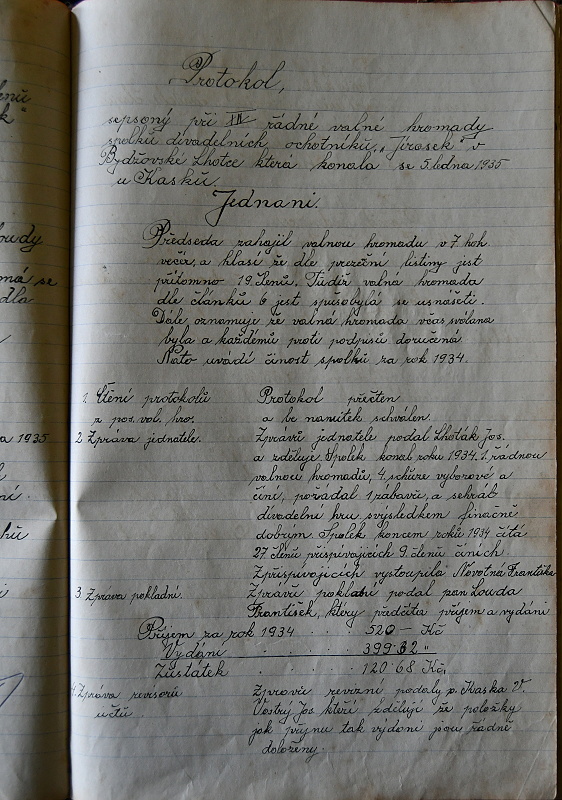 Protokol,
sepsoný při XIV řádné valné hromady
spolků divadelních, ochotníků, "Jirosek" v
Bydžovské Lhotce která konala se 5. ledna 1935
u Kasků.
Jednani.
Předseda zahajil valnou hromadu v 7 hoh
večír, a hlasí že dle prezeční listiny jest
přítomno 19 členů. Tudíž valná hromada
dle článků 6 jest spůsobylá se usnášeti.
Dále oznamuje že valná hromada včas svolana
byla a každémů proti podpisů doručená
Nato uvádí činost spolků za rok 1934.
1. Čtení protokolů
z pos. val. hro.
Protokol přečten
a be namitek schválen.
2 Zpráva jednatele.
Zpravů jednotele podal Lhoták Jos.
a zděluje. Spolek konal roku 1934. 1. řádnou
valnou hromadů, 4. schůze výborové a
činí, pořádal 1 zábavů, a sehrál
divadelní hru svýsledkem finačně
dobrým. Spolek koncem roků 1934 čítá
27. členů přispívajicích 9. členů činích.
Zpřispívajicích vystoupila Novotná Františka
3 Zpráva pokladní.
Zpravů pokladní podal pan Louda
František, který předčíta přijem a vydání
Přijem za rok 1934 . . . . 520 — Kč
Vydání . . . . 399·32 "
Zůstátek . . . . 120·68 Kč,
4. Zpráva revisorů
účtů.
Zpravů revizní podaly p. Kaska V.
Vostrý Jos. kteří zdělují že položky
jak přijmu tak vydaní jsou řádně
doloženy.
ludy
má se
dla
a 1935